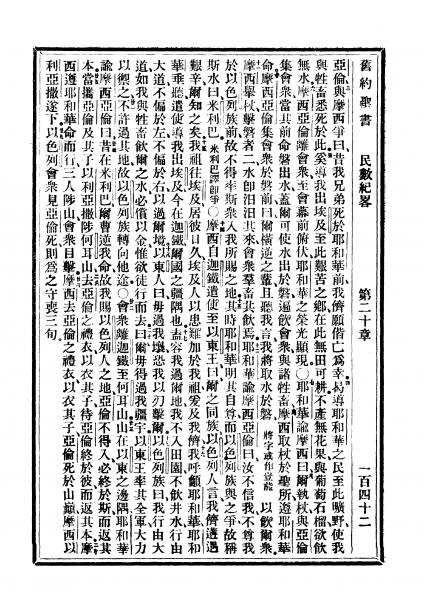 舊約聖書　民數紀畧　第二十章　一百四十二
亞倫與摩西爭曰昔我兄弟死於耶和華前我儕願偕亡爲幸曷導耶和華之民至此曠野使我
與牲畜悉死於此奚導我出埃及至此艱苦之鄉在此無田可耕不產無花果與葡萄石榴欲飲
無水摩西亞倫離會衆至會幕前俯伏耶和華之榮光顯現○耶和華諭摩西曰爾執杖與亞倫
集會衆當其前命磐出水蓋爾可使水出於磐遍飲會衆與諸牲畜摩西取杖於聖所遵耶和華
命摩西亞倫集會衆於磐前曰爾橫逆之輩且聽我言我將取水於磐將字或作豈能以飲爾衆
摩西舉杖擊磐者二水卽汩汩其來會衆羣畜其飲焉耶和華諭摩西亞倫曰汝不信我不尊我
於以色列族前故不得率斯衆入我所賜之地其時耶和華明其自尊而以色列族與之爭故稱
斯水曰米利巴米利巴譯卽爭○摩西自迦鐵遣使至以東王曰爾之同族以色列人言我儕遘遇
艱辛爾知之矣我祖往埃及居彼日久埃及人以患難加於我祖爰及我儕我呼籲耶和華耶和
華垂聽遣使導我出埃及今在迦鐵爾國之疆隅也盍容我過爾地我不入田園不飲井水行由
大道不偏於左不偏於右以過爾境以東人曰毋過我壤恐我以刃擊爾以色列族曰我行由大
道如我與牲畜飲爾之水必償以金惟欲徒行而去曰爾毋得過我疆宇以東王率其全軍大力
以禦之不許過其地故以色列族轉向他途○會衆離迦鐵至何耳山山在以東之邊隅耶和華
諭摩西亞倫曰昔在米利巴爾曹逆我命故我賜以色列人之地亞倫不得入必終於斯而返其
本當攜亞倫及其子以利亞撒陟何耳山去亞倫之禮衣以衣其子待亞倫終於彼而返其本摩
西遵耶和華命而行三人陟山會衆目擊摩西去亞倫之禮衣以衣其子亞倫死於山巔摩西以
利亞撒遂下以色列會衆見亞倫死則爲之守喪三旬